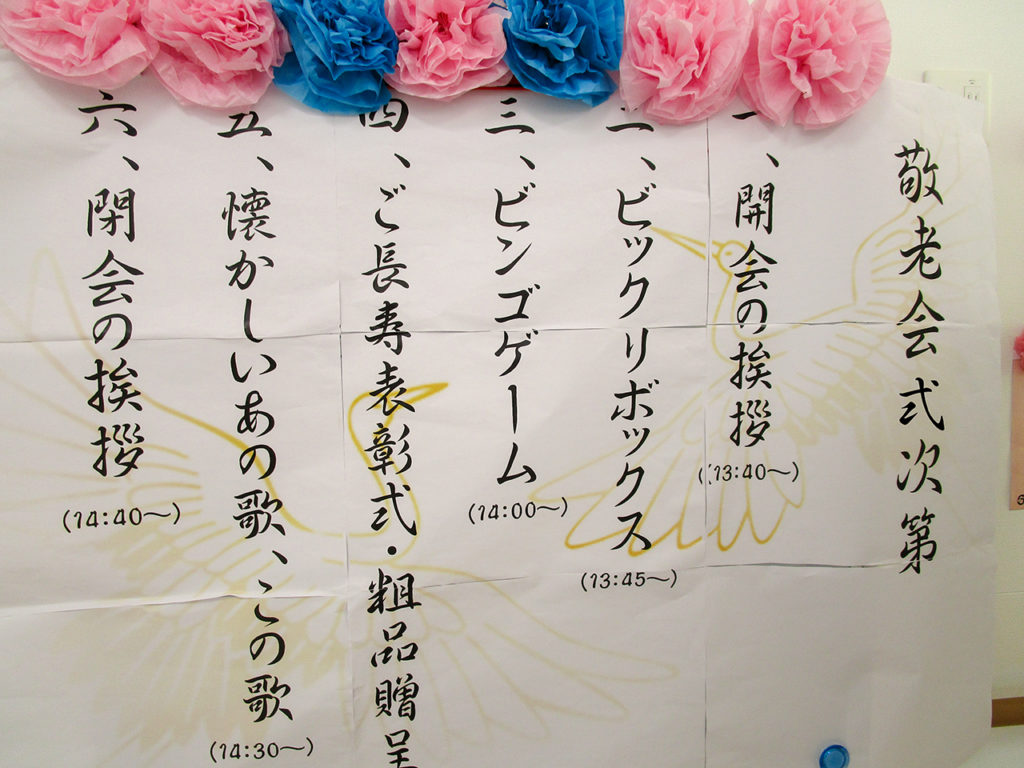 敬老会式次第
一、開会の挨拶
(13:40～)
二、ビックリボックス
(13:45～)
三、ビンゴゲーム
(14:00～)
四、ご長寿表彰式・粗品贈呈
五、懐かしいあの歌、この歌
(14:30～)
六、閉会の挨拶
(14:40～)